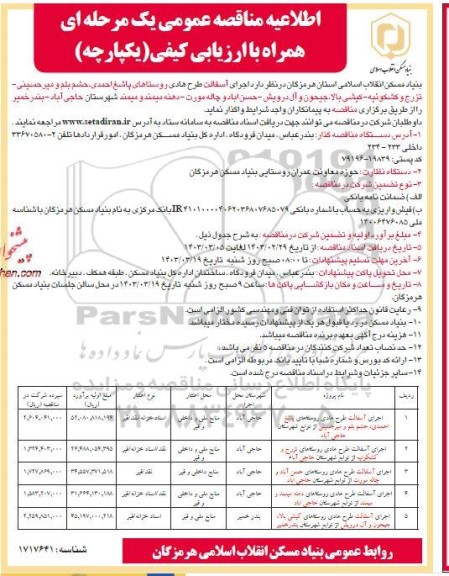 اطلاعیه مناقصه عمومی یک مرحله ای
همراه با ارزیابی کیفی(یکپارچه)
بنیاد مسکن انقلاب اسلامی
بنیاد مسکن انقلاب اسلامی استان هرمزگان در نظر دارد اجرای آسفالت طرح هادی روستاهای پاشغ احمدی، حشم بلم و میرحسینی-
تزرج و کشکوئیه-کیشی بالا، جیحون و آل درویش-حسن آباد و چاله مورت-دهنه میمند و میمند شهرستان حاجی آباد - بندر خمیر
را از طریق برگزاری مناقصه به پیمانکاران واجد شرایط واگذار نماید.
داوطلبان شرکت در مناقصه می توانند جهت دریافت اسناد مناقصه به سامانه ستاد به آدرس www.setadiran.ir مراجعه نمایند.
۱- آدرس دستگاه مناقصه گذار: بندرعباس، میدان فرودگاه، اداره کل بنیاد مسکن هرمزگان، امور قراردادها تلفن ۲-۳۳۶۷۰۵۸۰
داخلی ۲۳۳ - ۲۳۴
کد پستی: ۱۹۸۳۹-۷۹۱۹۶
۲- دستگاه نظارت: حوزه معاونت عمران روستایی بنیاد مسکن هرمزگان
۳- نوع تضمین شرکت در مناقصه:
الف) ضمانت نامه بانکی
ب) فیش واریزی به حساب با شماره بانکی IR۴۱۰۱۰۰۰۰۴۰۶۲۰۳۶۸۰۷۶۸۵۰۷۹ بانک مرکزی به نام بنیاد مسکن هرمزگان با شناسه
ملی ۱۴۰۰۶۴۷۶۰۸۵
۴- مبلغ برآورد اولیه و تضمین شرکت در مناقصه: به شرح جدول ذیل.
۵- تاریخ دریافت اسناد مناقصه: از تاریخ ۱۴۰۳/۰۲/۲۹ لغایت ۱۴۰۳/۰۳/۰۵
۶- آخرین مهلت تسلیم پیشنهادات: تا ۰۸:۰۰ صبح روز شنبه تاریخ ۱۴۰۳/۰۳/۱۹
۷- محل تحویل پاکت پیشنهادات: بندرعباس، میدان فرودگاه، ساختمان اداره کل بنیاد مسکن، طبقه همکف، دبیرخانه.
۸- تاریخ و مساعت و مکان بازگشایی پاکت ها: ساعت ۹ صبح روز شنبه تاریخ ۱۴۰۳/۰۳/۱۹ در محل سالن جلسات بنیاد مسکن
هرمزگان.
۹- رعایت قانون حداکثر استفاده از توان فنی و مهندسی کشور الزامی است.
۱۰- بنیاد مسکن در رد یا قبول هر یک از پیشنهادات رسیده مختار میباشد
۱۱- هزینه درج آگهی بعهده برنده مناقصه میباشد.
۱۲- حد نصاب تعداد شرکت کنندگان در مناقصه ۵ نفر می باشد.
۱۳- ارائه کد بورس و شماره شبا با تایید بانک مربوطه الزامی است.
۱۴- سایر جزئیات و شرایط در اسناد مناقصه درج شده است.
ردیف نام پروژه شهرستان محل اجرا محل اعتبار نوع اعتبار مبلغ اولیه برآورد (ریال) سپرده شرکت در مناقصه (ریال)
۱ اجرای آسفالت طرح هادی روستاهای پاشغ احمدی، حشم بلم و میرحسینی از توابع شهرستان حاجی آباد حاجی آباد منابع ملی و داخلی و قیر اسناد خزانه/نقد/قیر
۲ اجرای آسفالت طرح هادی روستاهای تزرج و کشکوئیه از توابع شهرستان حاجی آباد حاجی آباد منابع ملی و داخلی و قیر نقد/اسناد خزانه/قیر
۳ اجرای آسفالت طرح هادی روستاهای حسن آباد و چاله مورت از توابع شهرستان حاجی آباد حاجی آباد منابع ملی و داخلی و قیر نقد/قیر
۴ اجرای آسفالت طرح هادی روستاهای دهنه میمند و میمند از توابع شهرستان حاجی آباد حاجی آباد منابع ملی و داخلی و قیر نقد/اسناد خزانه/قیر
۵ اجرای آسفالت طرح هادی روستاهای کیشی بالا، جیحون و آل درویش از توابع شهرستان بندرخمیر بندر خمیر منابع ملی و قیر اسناد خزانه/قیر
روابط عمومی بنیاد مسکن انقلاب اسلامی هرمزگان
شناسه: ۱۷۱۷۶۴۱